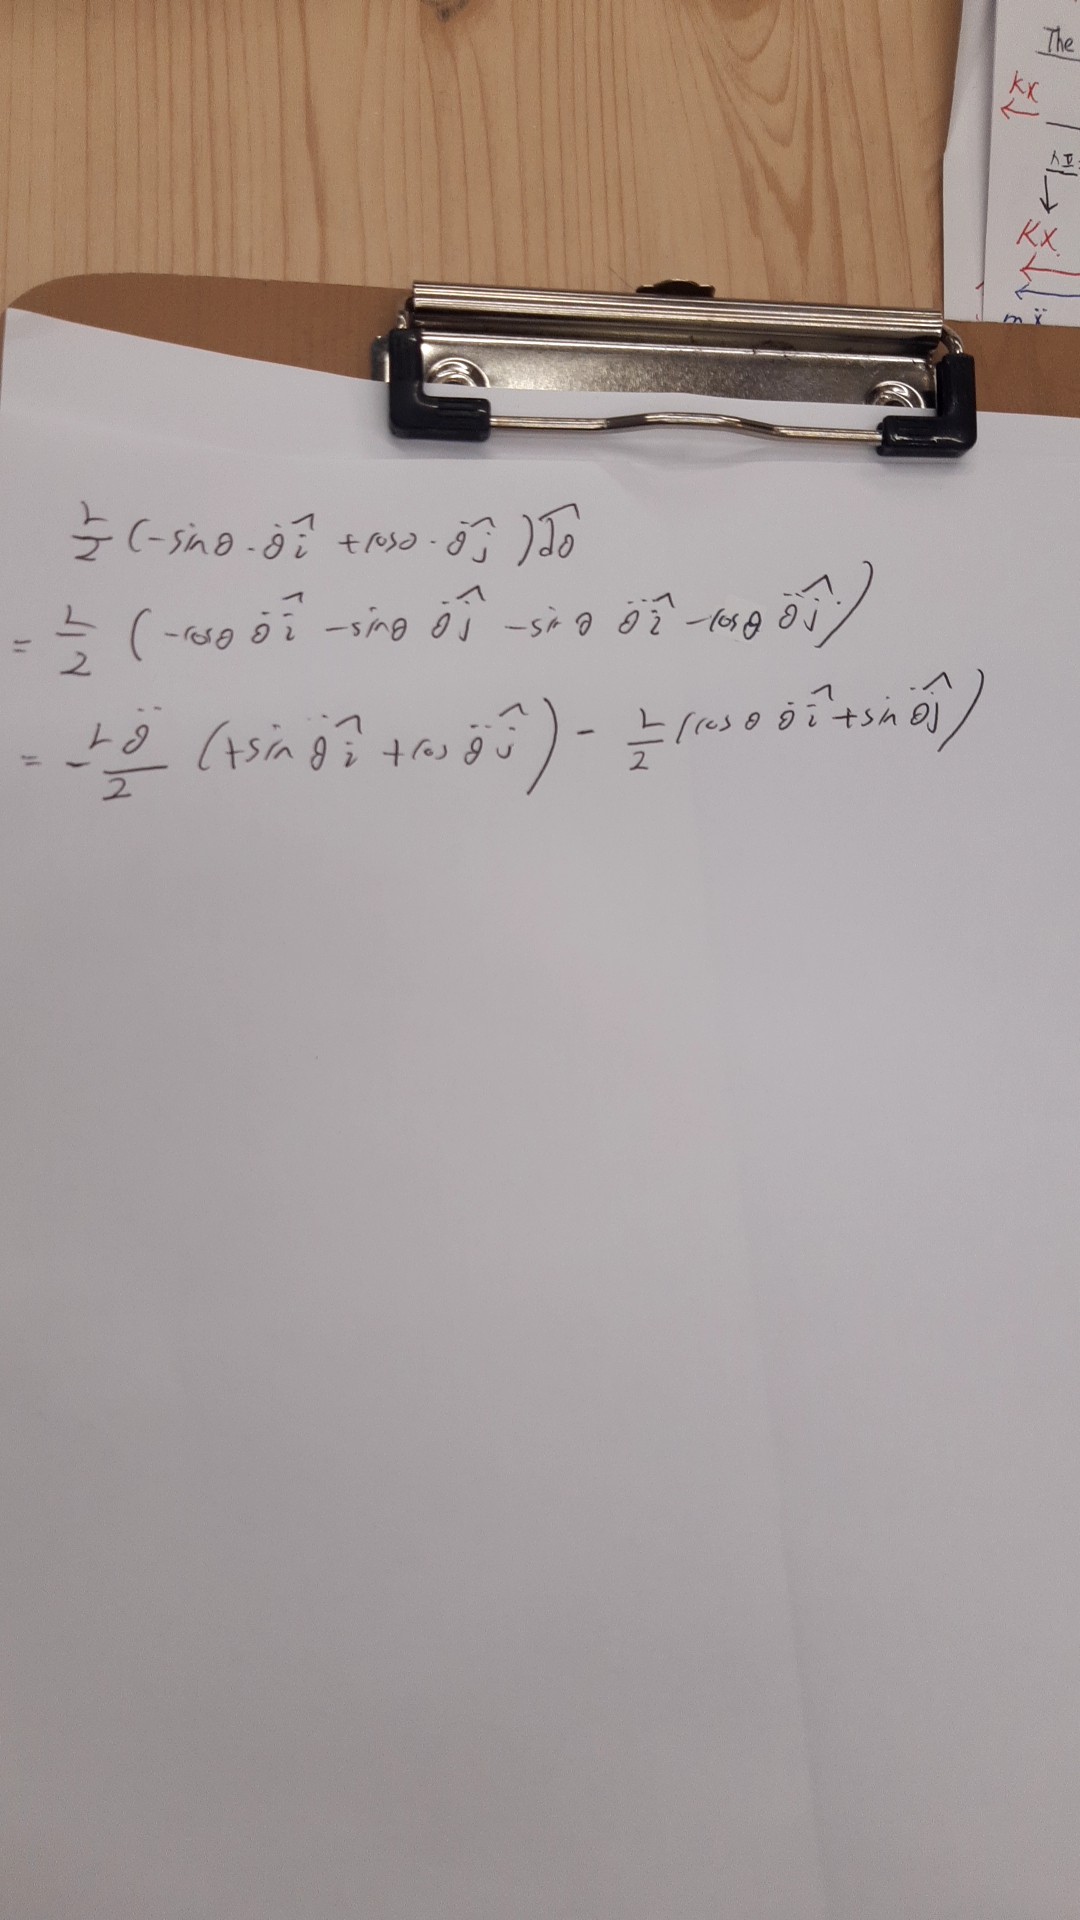 The
kx
스프
Kx
mẍ
L/2 (-sinθ · θ̇ î + cosθ · θ̇ ĵ ) d̂θ
= L/2 ( -cosθ θ̇ î - sinθ θ̇ ĵ - sinθ θ̈ î - cosθ θ̈ ĵ )
= - Lθ̈/2 (+sin θ̈ î + cos θ̈ ĵ ) - L/2 (cosθ θ̇ î + sin θ̈ ĵ )